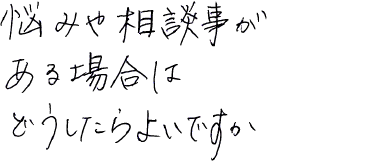 悩みや相談事が
ある場合は
どうしたらよいですか